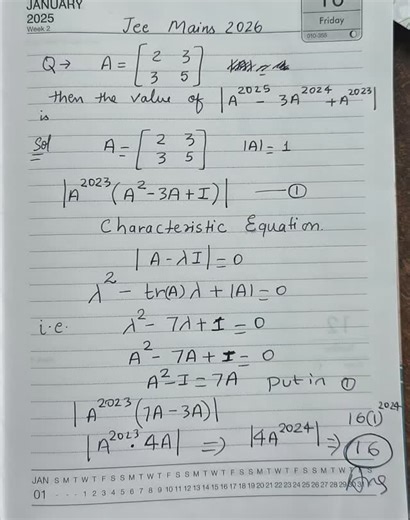 JANUARY
2025
Week 2
Friday
Jee Mains 2026
Q → A = [2 3
3 5]
then the value of |A^2025 - 3A^2024 + A^2023|
is
Sol A = [2 3
3 5] |A| = 1
|A^2023 (A^2 - 3A + I)| — ①
Characteristic Equation.
|A - λI| = 0
λ^2 - tr(A) λ + |A| = 0
i.e. λ^2 - 7λ + 1 = 0
A^2 - 7A + I = 0
A^2 - I = 7A put in ①
|A^2023 (7A - 3A)|
|A^2023 · 4A| ⇒ |4A^2024| ⇒ 16(1)^2024
16
Ans
JAN S M T W T F S S M T W T F S S M T W T F S S M T W T F S S M T W T F S
01 - - - 1 2 3 4 5 6 7 8 9 10 11 12 13 14 15 16 17 18 19 20 21 22 23 24 25 26 27 28 29 30 31